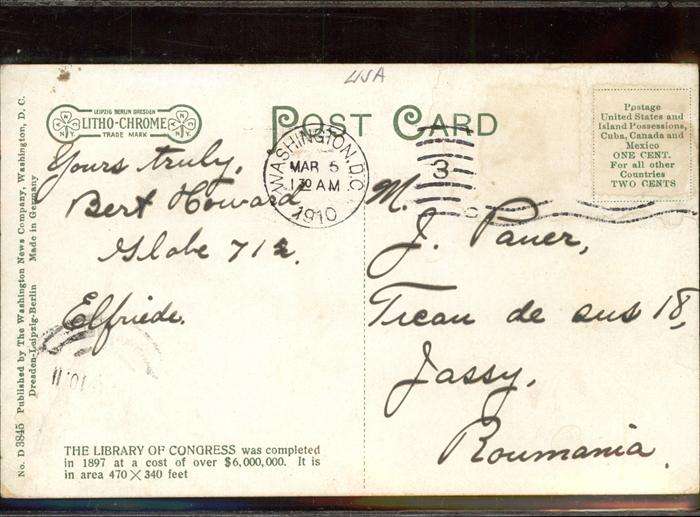 USA
LEIPZIG BERLIN DRESDEN
LITHO-CHROME
TRADE MARK
N.Y.
N.Y.
POST CARD
WASHINGTON, D.C.
MAR 5
1 30 AM
1910
3
Postage
United States and
Island Possessions,
Cuba, Canada and
Mexico
ONE CENT.
For all other
Countries
TWO CENTS
Yours truly,
Bert Howard
Globe 712.
Elfriede.
M.
J. Pauer,
Ticau de sus 18,
Jassy,
Roumania.
THE LIBRARY OF CONGRESS was completed
in 1897 at a cost of over $6,000,000. It is
in area 470 × 340 feet
No. D 3845 Published by The Washington News Company, Washington, D. C.
Dresden-Leipzig-Berlin Made in Germany